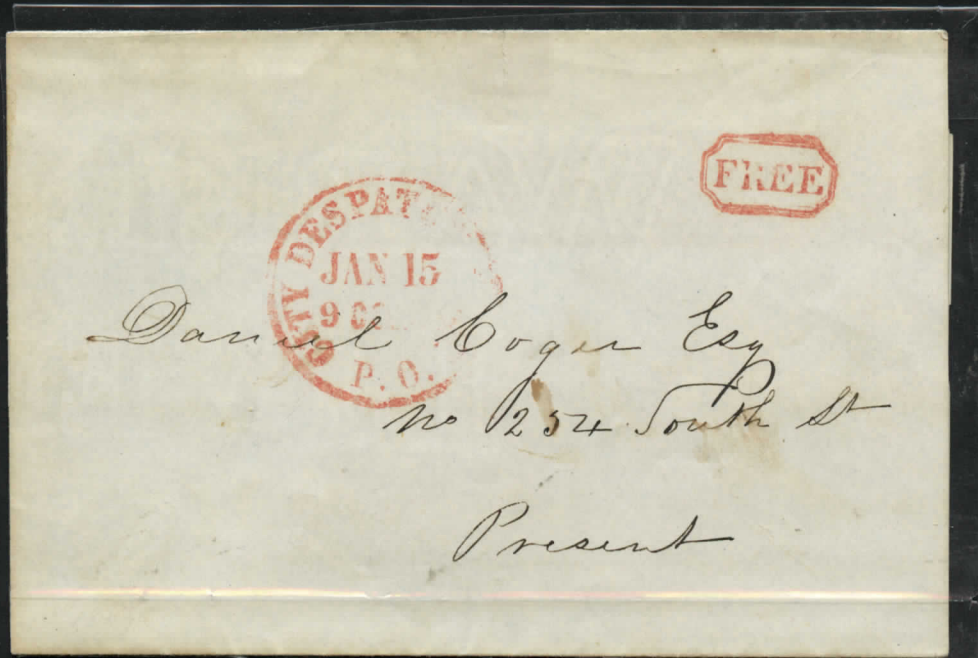 FREE
CITY DESPATCH
JAN 15
9
P.O.
Daniel Coger Esq
No 254 South St
Present